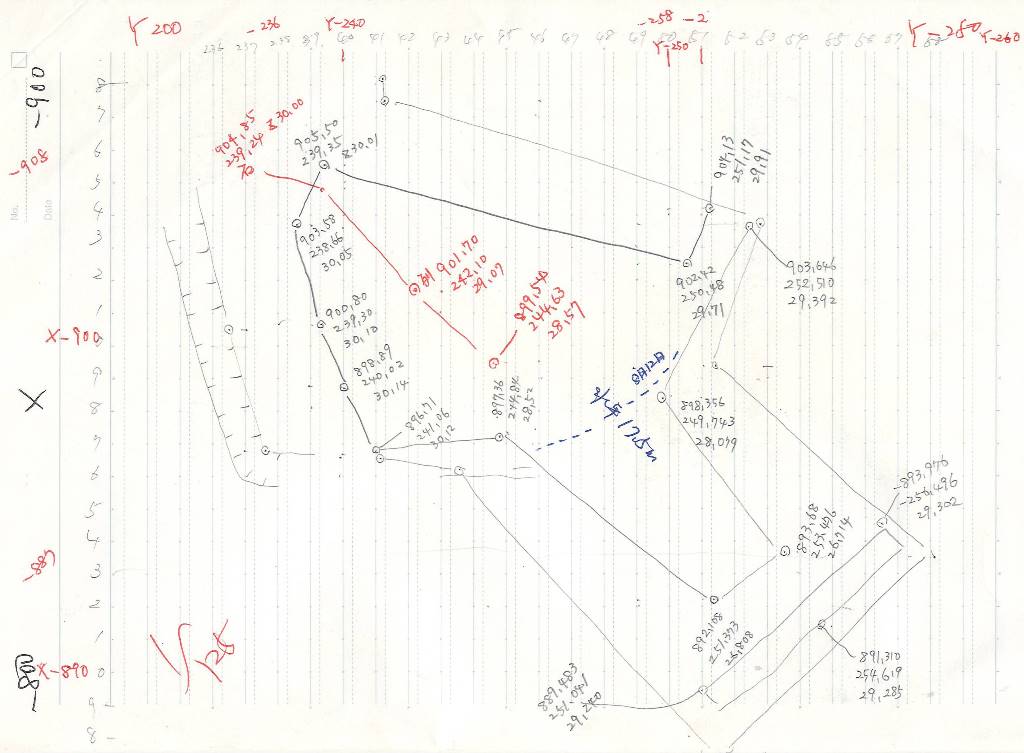 Y 200
-236
Y-240
-258 -2
Y-250
Y-250
Y-260
236 237 238 39 40 41 42 43 44 45 46 47 48 49 50 51 52 53 54 55 56 57 58
-900
-908
No.
Date
X-900
X
-887
-800
X-890
8
7
6
5
4
3
2
9
8
7
6
5
4
3
2
1
0
9
8
904,85
239,24 Z30,00
905,50
239,35 Z30,01
903,58
238,66
30,05
901,70
242,10
29,07
899,54
244,63
28,57
904,13
251,17
29,91
902,42
250,48
29,71
903,646
252,510
29,392
900,80
239,30
30,10
898,89
240,02
30,14
896,71
241,06
30,12
897,36
244,84
28,52
8月12日
17.5m
898,356
249,743
28,079
-893,976
-256,496
29,302
893,68
253,496
26,714
892,108
251,373
28,808
889,483
251,041
29,240
891,310
254,619
29,285
1/125